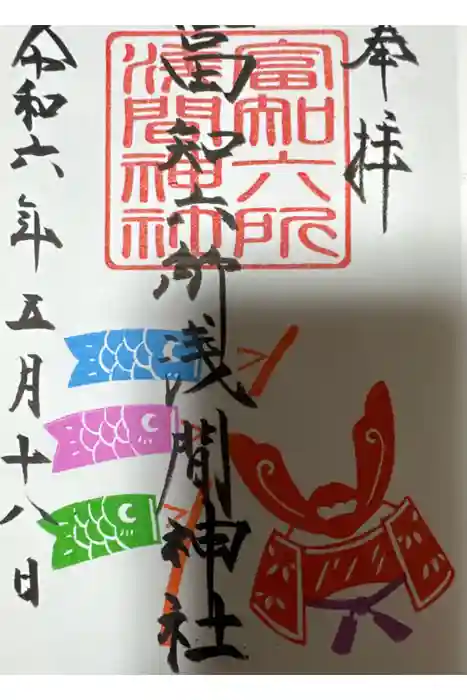 奉拝
富知六所浅間神社
令和六年五月十八日
富知六所
浅間神社